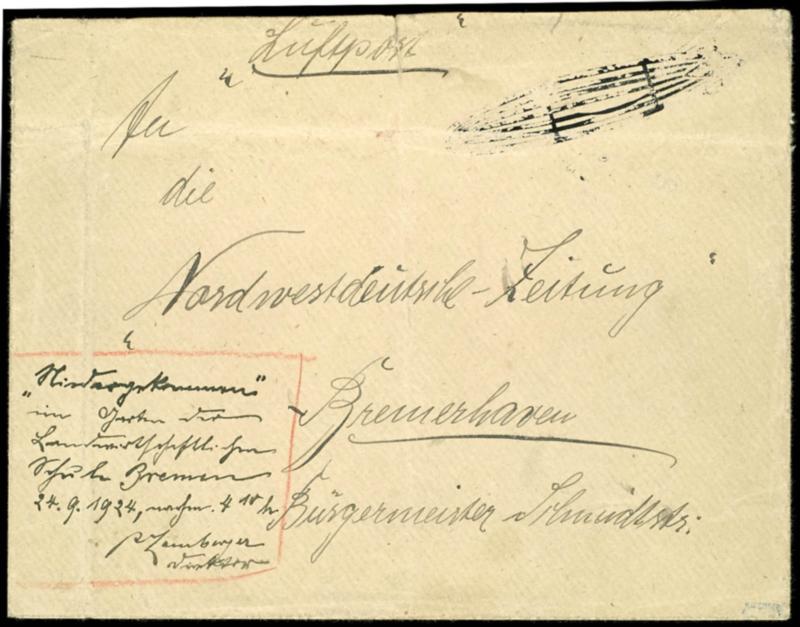 „Luftpost"
An
die
Nordwestdeutsche-Zeitung"
Bremerhaven
Bürgermeister Schmidtstr.
„Niedergekommen"
im Garten der
Landwirtschaftlichen
Schule Bremen
24.9.1924, nachm. 4 10 h
Direktor